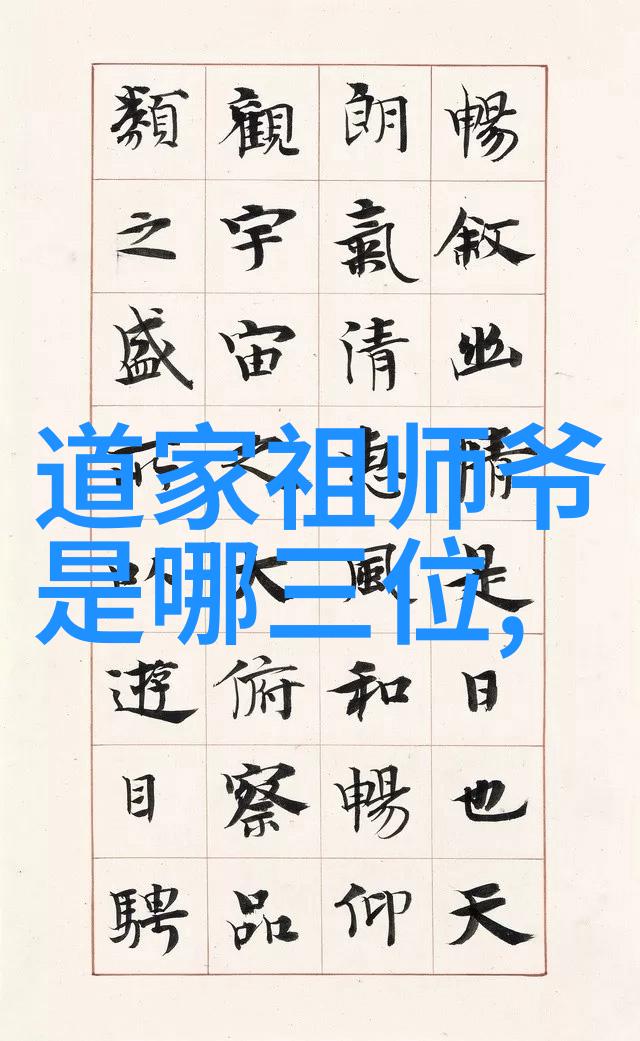 道家祖师爷
是哪三位,
暢敘幽情是日也天
朗氣清惠風和暢仰
觀宇宙之大俯察品
類之盛所以遊目騁